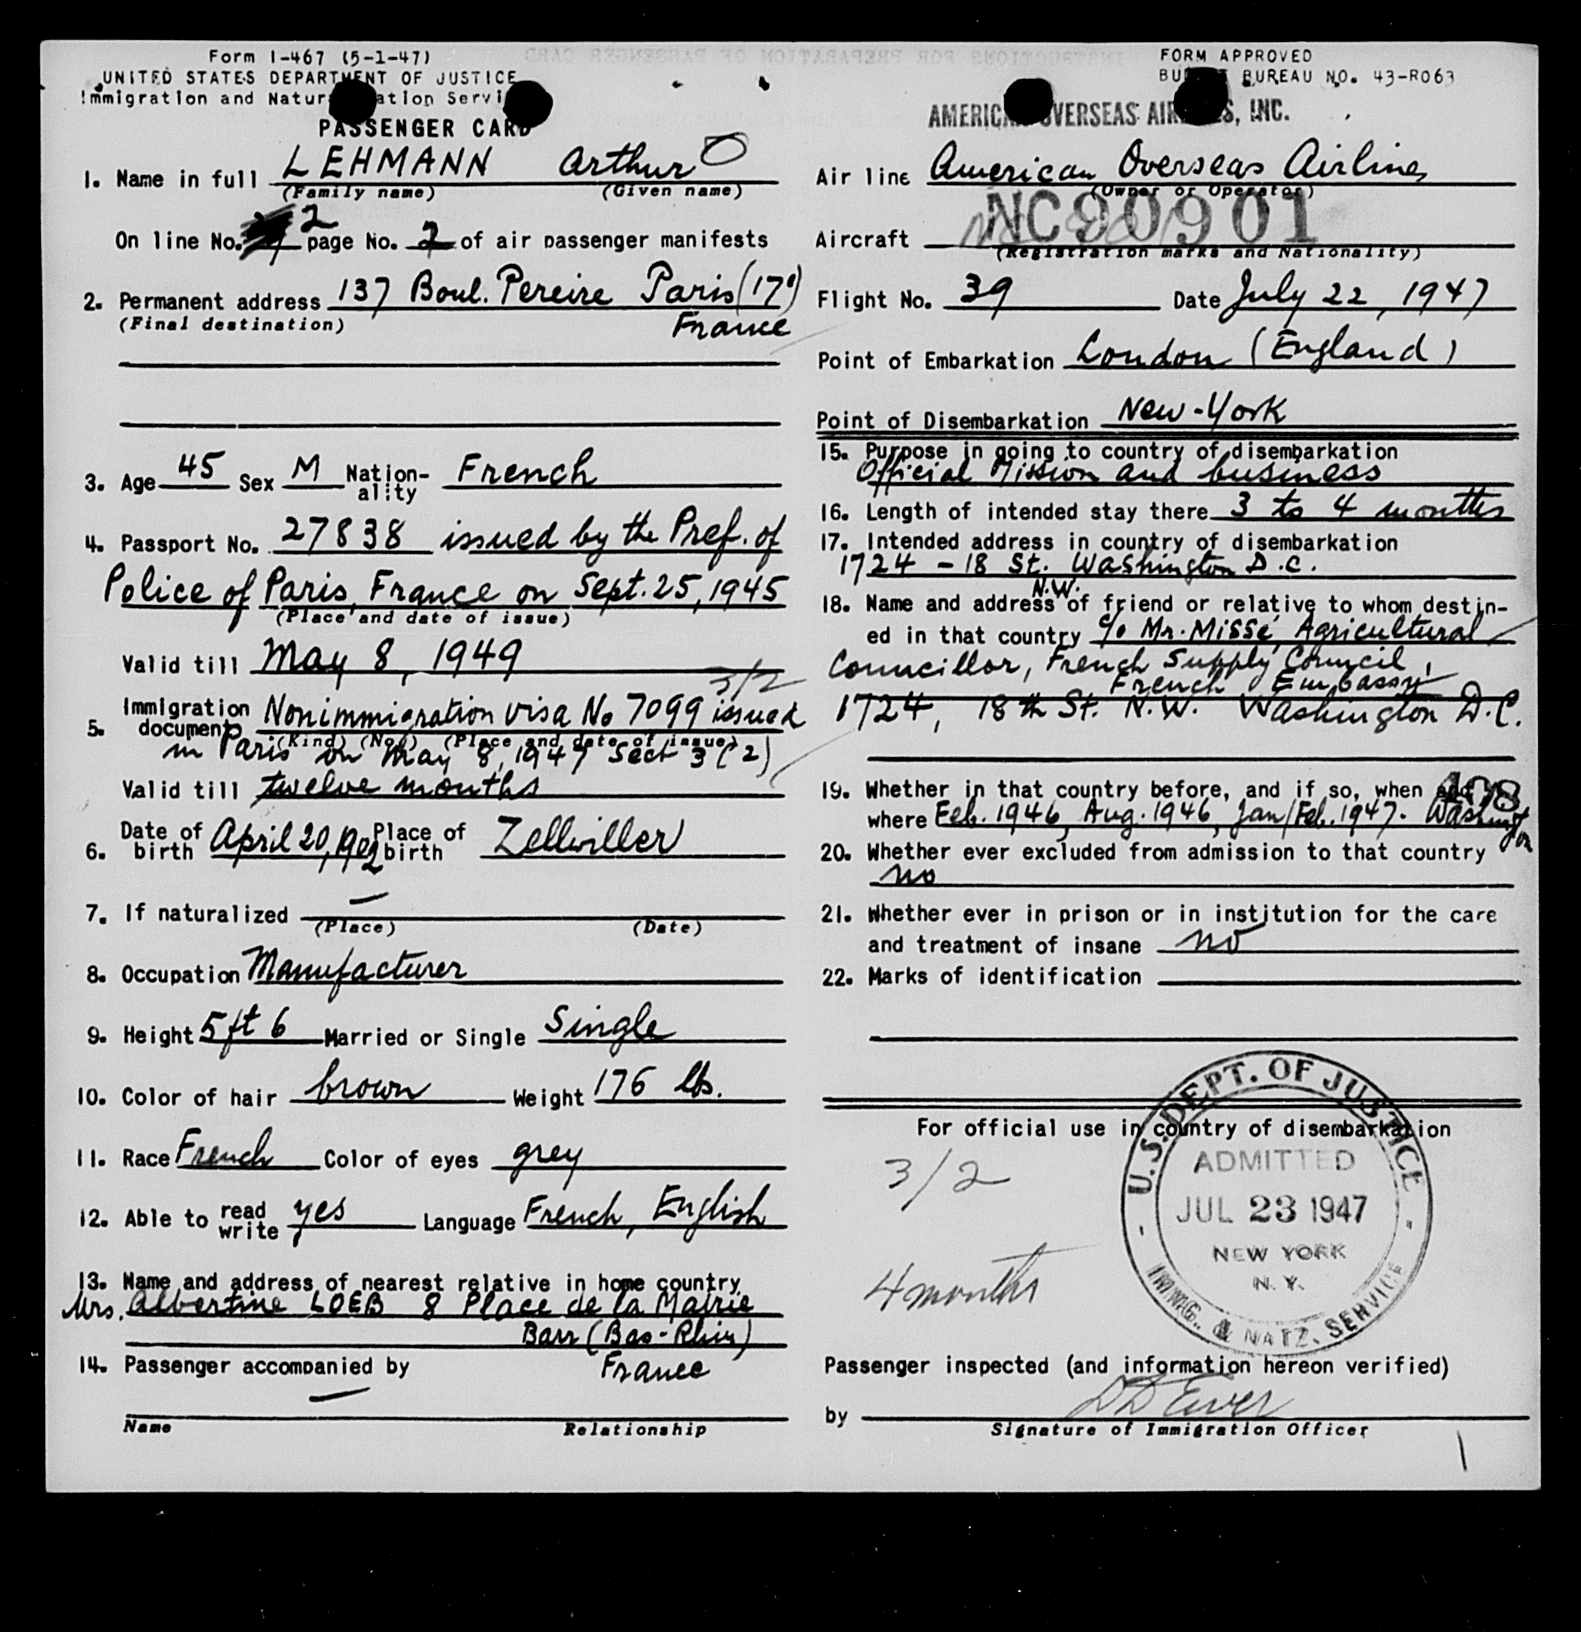 Form I-467 (5-1-47)
UNITED STATES DEPARTMENT OF JUSTICE
Immigration and Naturalization Service
PASSENGER CARD
1. Name in full LEHMANN Arthur
(Family name) (Given name)
On line No. 2 page No. 2 of air passenger manifests
2. Permanent address 137 Boul. Pereire Paris (17e)
(Final destination) France
3. Age 45 Sex M Nationality French
4. Passport No. 27838 issued by the Pref. of
Police of Paris, France on Sept. 25, 1945
(Place and date of issue)
Valid till May 8, 1949
3/2
5. Immigration documents Nonimmigration visa No 7099 issued
(Kind) (No.) (Place and date of issue)
in Paris on May 8, 1947 Sect 3 (2)
Valid till twelve months
6. Date of birth April 20, 1902 Place of birth Zellwiller
7. If naturalized —
(Place) (Date)
8. Occupation Manufacturer
9. Height 5 ft 6 Married or Single Single
10. Color of hair brown Weight 176 lbs.
11. Race French Color of eyes grey
12. Able to read write yes Language French, English
13. Name and address of nearest relative in home country
Mrs. Albertine LOEB 8 Place de la Mairie
Barr (Bas-Rhin)
France
14. Passenger accompanied by
—
Name Relationship
FORM APPROVED
BUDGET BUREAU NO. 43-R063
AMERICAN OVERSEAS AIRLINES, INC.
Air line American Overseas Airlines
(Owner or Operator)
Aircraft NC90901
(Registration marks and Nationality)
Flight No. 39 Date July 22, 1947
Point of Embarkation London (England)
Point of Disembarkation New-York
15. Purpose in going to country of disembarkation
Official Mission and business
16. Length of intended stay there 3 to 4 months
17. Intended address in country of disembarkation
1724 - 18 St. Washington D.C.
N.W.
18. Name and address of friend or relative to whom destin-
ed in that country c/o Mr. Missé, Agricultural
Councillor, French Supply Council,
French Embassy
1724, 18th St. N.W. Washington D.C.
19. Whether in that country before, and if so, when and
408
where Feb. 1946, Aug. 1946, Jan/Feb. 1947. Washington
20. Whether ever excluded from admission to that country
no
21. Whether ever in prison or in institution for the care
and treatment of insane no
22. Marks of identification
For official use in country of disembarkation
3/2
4 months
U.S. DEPT. OF JUSTICE
ADMITTED
JUL 23 1947
NEW YORK
N.Y.
IMMIG. & NATZ. SERVICE
Passenger inspected (and information hereon verified)
by
Signature of Immigration Officer